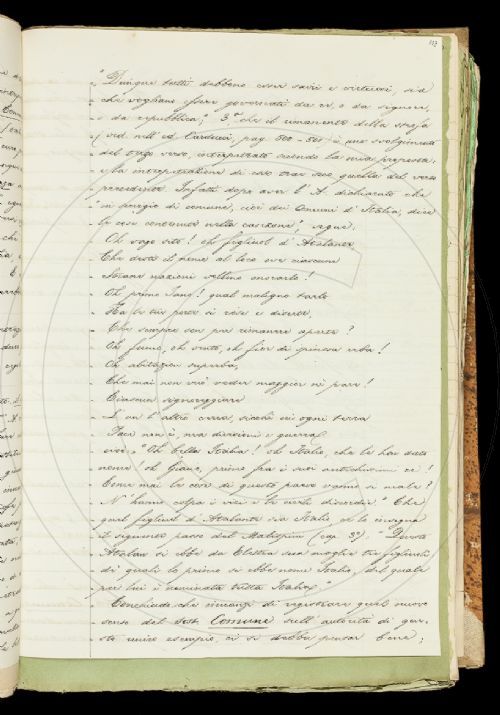 117
"Dunque tutti debbono essere savii e virtuosi, sia
che vogliano essere governati da re, o da signore,
o da repubblica? 3.° che il rimanente della strofa
(vid. nell' ed. Carducci, pag. 360-361) è uno svolgimento
del verso, interpretato secondo la mia proposta:
e la interpretazione di esso trae seco quella del verso
precedente. Infatti dopo aver l'A. dichiarato che
in pregio di comune, cioè dei Comuni d'Italia, dice
le cose contenute nella canzone, segue:
Oh vaga sité! oh figliuol d'Atalante,
Che desti il nome al loco ove ciascuna
Strana nazioni onorarlo!
Oh primo Iano! qual maligno tarlo
Ha le tue parte sì rose e
Che sempre sen può rimanere aperte?
Oh fumo, oh vento, oh fior di spinosa erba!
Oh abitazion superba,
Che mai non vuo' veder maggior né pare!
Ciascun signoreggiare
L'un l'altro crede, sicché in ogni terra
Pace non è, ma divisioni e guerra!
cioè: "Oh bella Italia! oh Italo, che le hai dato
nome! oh Giano, primo fra i suoi antichissimi re!
Come mai le cose di questo paese vanno sì male?
N'hanno colpa i vizi e le civili discordie." Che
quel figliuol d'Atalante sia Italo, ce lo insegna
il seguente passo del Malispini (cap. 3.°). "Questo
Atalan si ebbe da Elettra sua moglie tre figliuoli
di quali lo primo si ebbe nome Italo, del quale
per lui è nominata tutta Italia."
Conchiudo, che innanzi di registrare quel nuovo
senso del Sost. Comune sull'autorità di que-
sto unico esempio, ci si debba pensar bene;